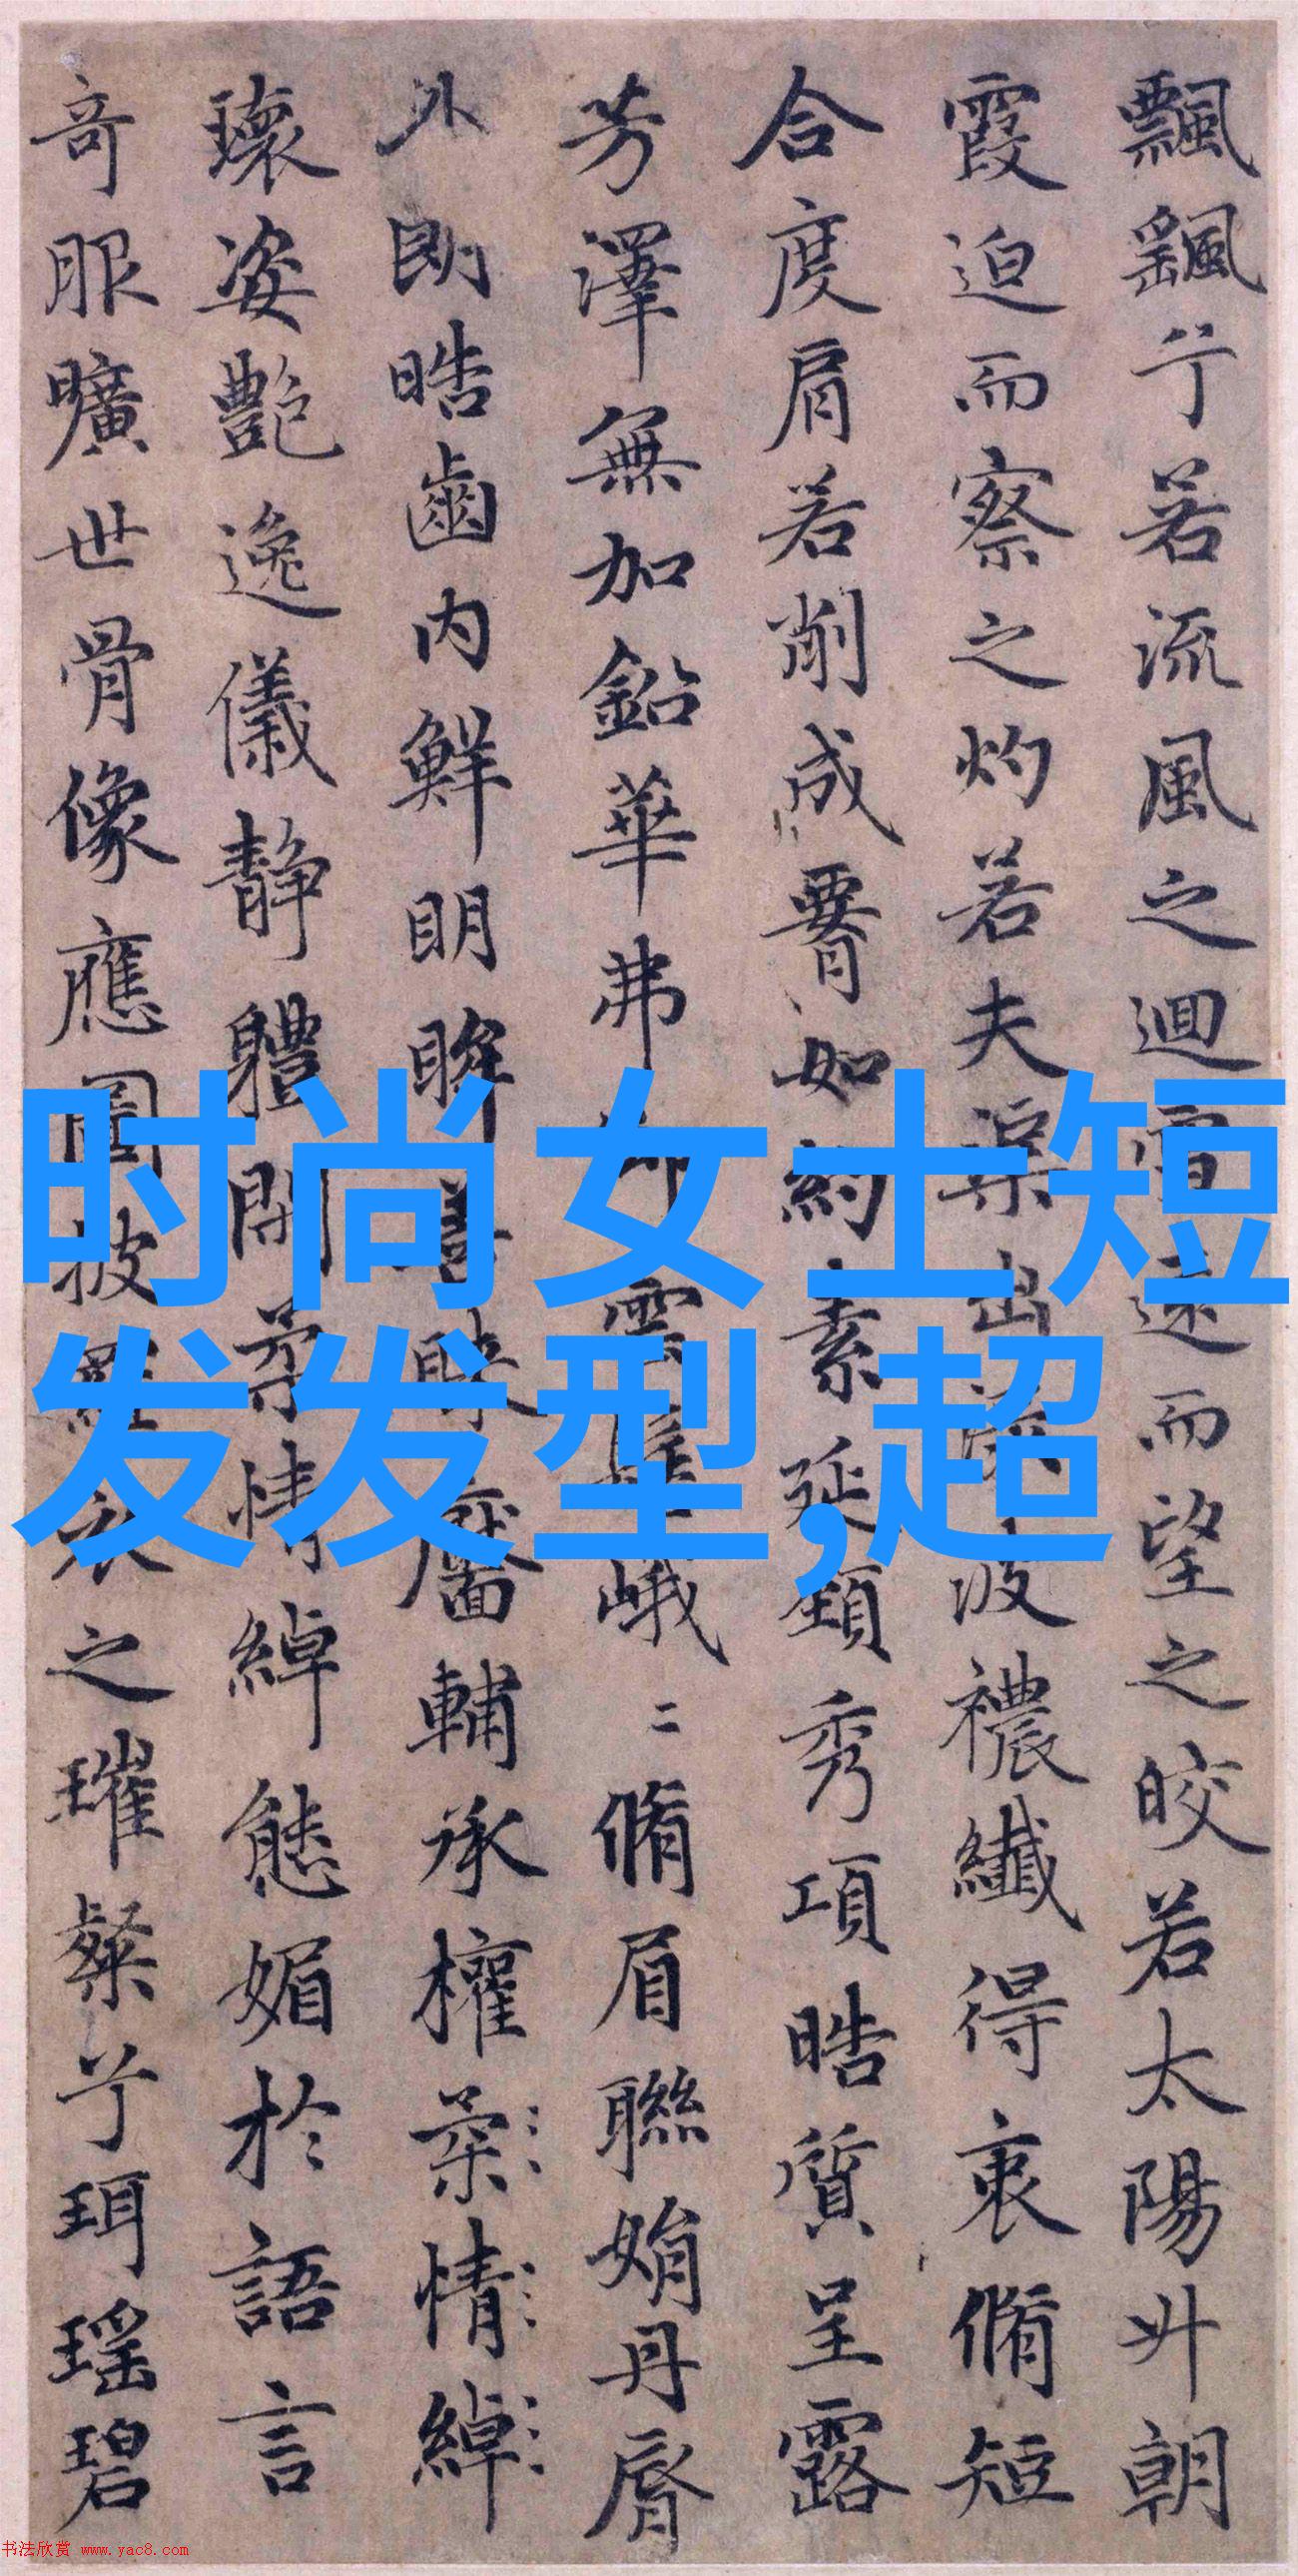 飄飖兮若流風之迴雪遠而望之皎若太陽升朝
霞迫而察之灼若夫渠出淥波禯纖得衷脩短
合度肩若削成䙅如約素延頸秀項皓質呈露
芳澤無加鉛華弗御雲髻峨二脩眉聯娟丹脣
外朗皓齒内鮮明眸善睞靨輔承權柔情綽
瓌姿艷逸儀靜體閑柔情綽態媚於語言
奇服曠世骨像應圖披羅衣之璀粲兮珥瑶碧
时尚女士短
发发型,超
书法欣赏 www.yac8.com